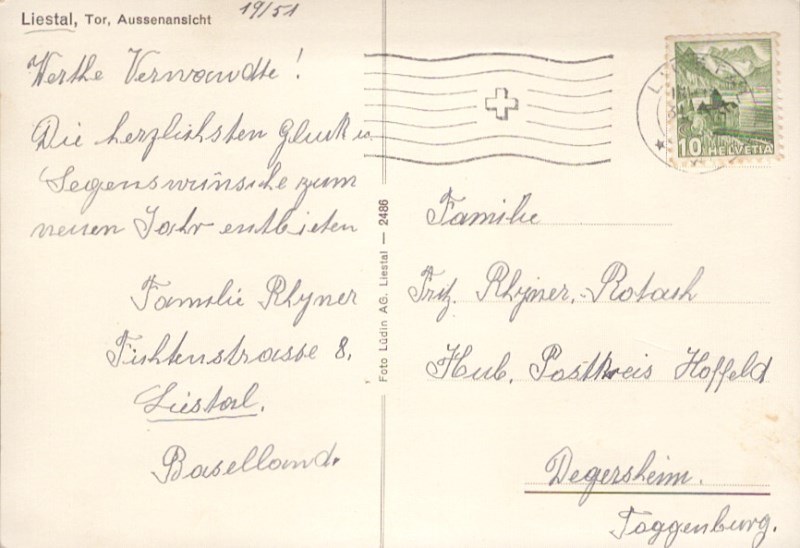 Liestal, Tor, Aussenansicht
19/51
Werthe Verwandte!
Die herzlichsten Glück u.
Segenswünsche zum
neuen Jahr entbieten
Familie Rhyner
Fichtenstrasse 8,
Liestal.
Baselland.
Foto Lüdin AG. Liestal — 2486
10 HELVETIA
Familie
Fritz Rhyner,-Rotach
Hub, Postkreis Hoffeld
Degersheim.
Toggenburg.